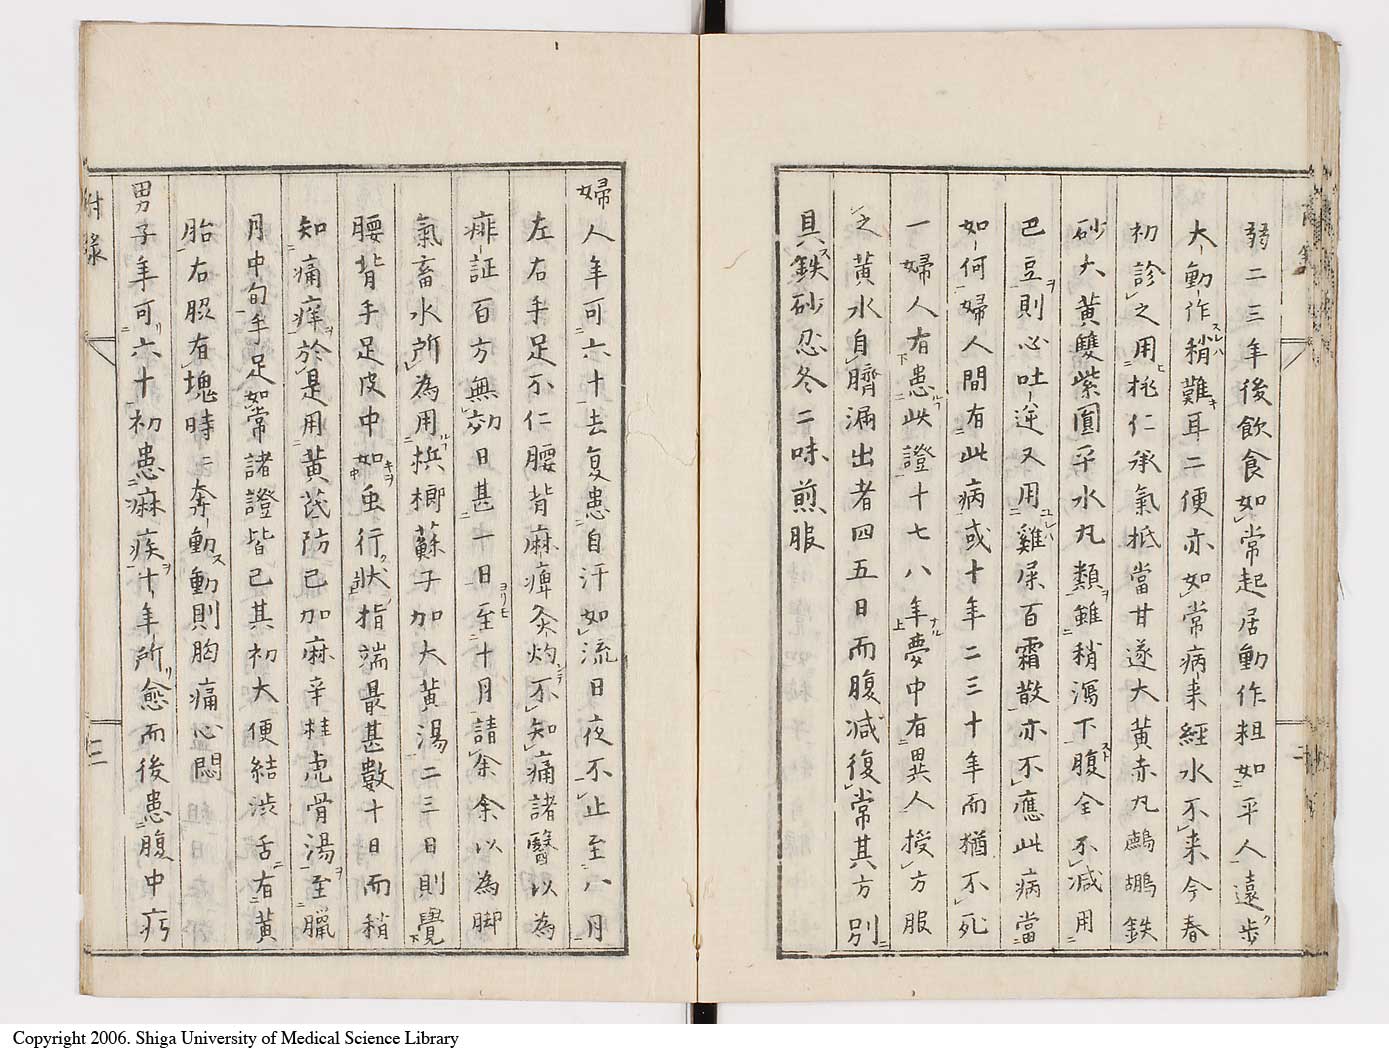 弱二三年後飲食如常起居動作粗如平人遠歩
大動作稍難耳二便亦如常病来經水不来今春
初診之用桃仁承氣抵當甘遂大黄赤丸鷓鴣鉄
砂大黄雙紫圓平水丸類雖稍瀉下腹全不減用
巴豆則心吐逆又用雞屎百霜散亦不應此病當
如何婦人間有此病或十年二三十年而猶不死
一婦人有患此證十七八年夢中有異人授方服
之黄水自臍漏出者四五日而腹減復常其方別
具鉄砂忍冬二味煎服
婦人年可六十去夏患自汗如流日夜不止至八月
左右手足不仁腰背麻痺灸灼不知痛諸醫以為
痱証百方無効日甚一日至十月請余余以為脚
氣畜水所為用梹榔蘇子加大黄湯二三日則覺
腰背手足皮中如虫行状指端最甚數十日而稍
知痛痒於是用黄芪防己加麻辛桂虎骨湯至臘
月中旬手足如常諸證皆已其初大便結渋舌有黄
胎右脇有塊時奔動動則胸痛心悶
男子年可六十初患麻疾十年所愈而後患腹中疞
附録
三
Copyright 2006. Shiga University of Medical Science Library